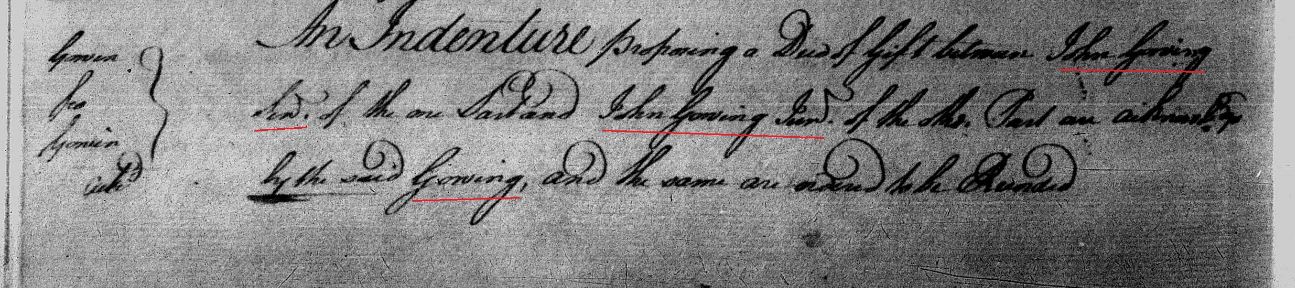 Gowin
fro
Gowin
ackd
An Indenture proposing a Deed of Gift between John Gowing
Senr. of the one Part and John Gowing Junr. of the othr. Part are
by the said Gowing, and the same are ordered to be Recorded